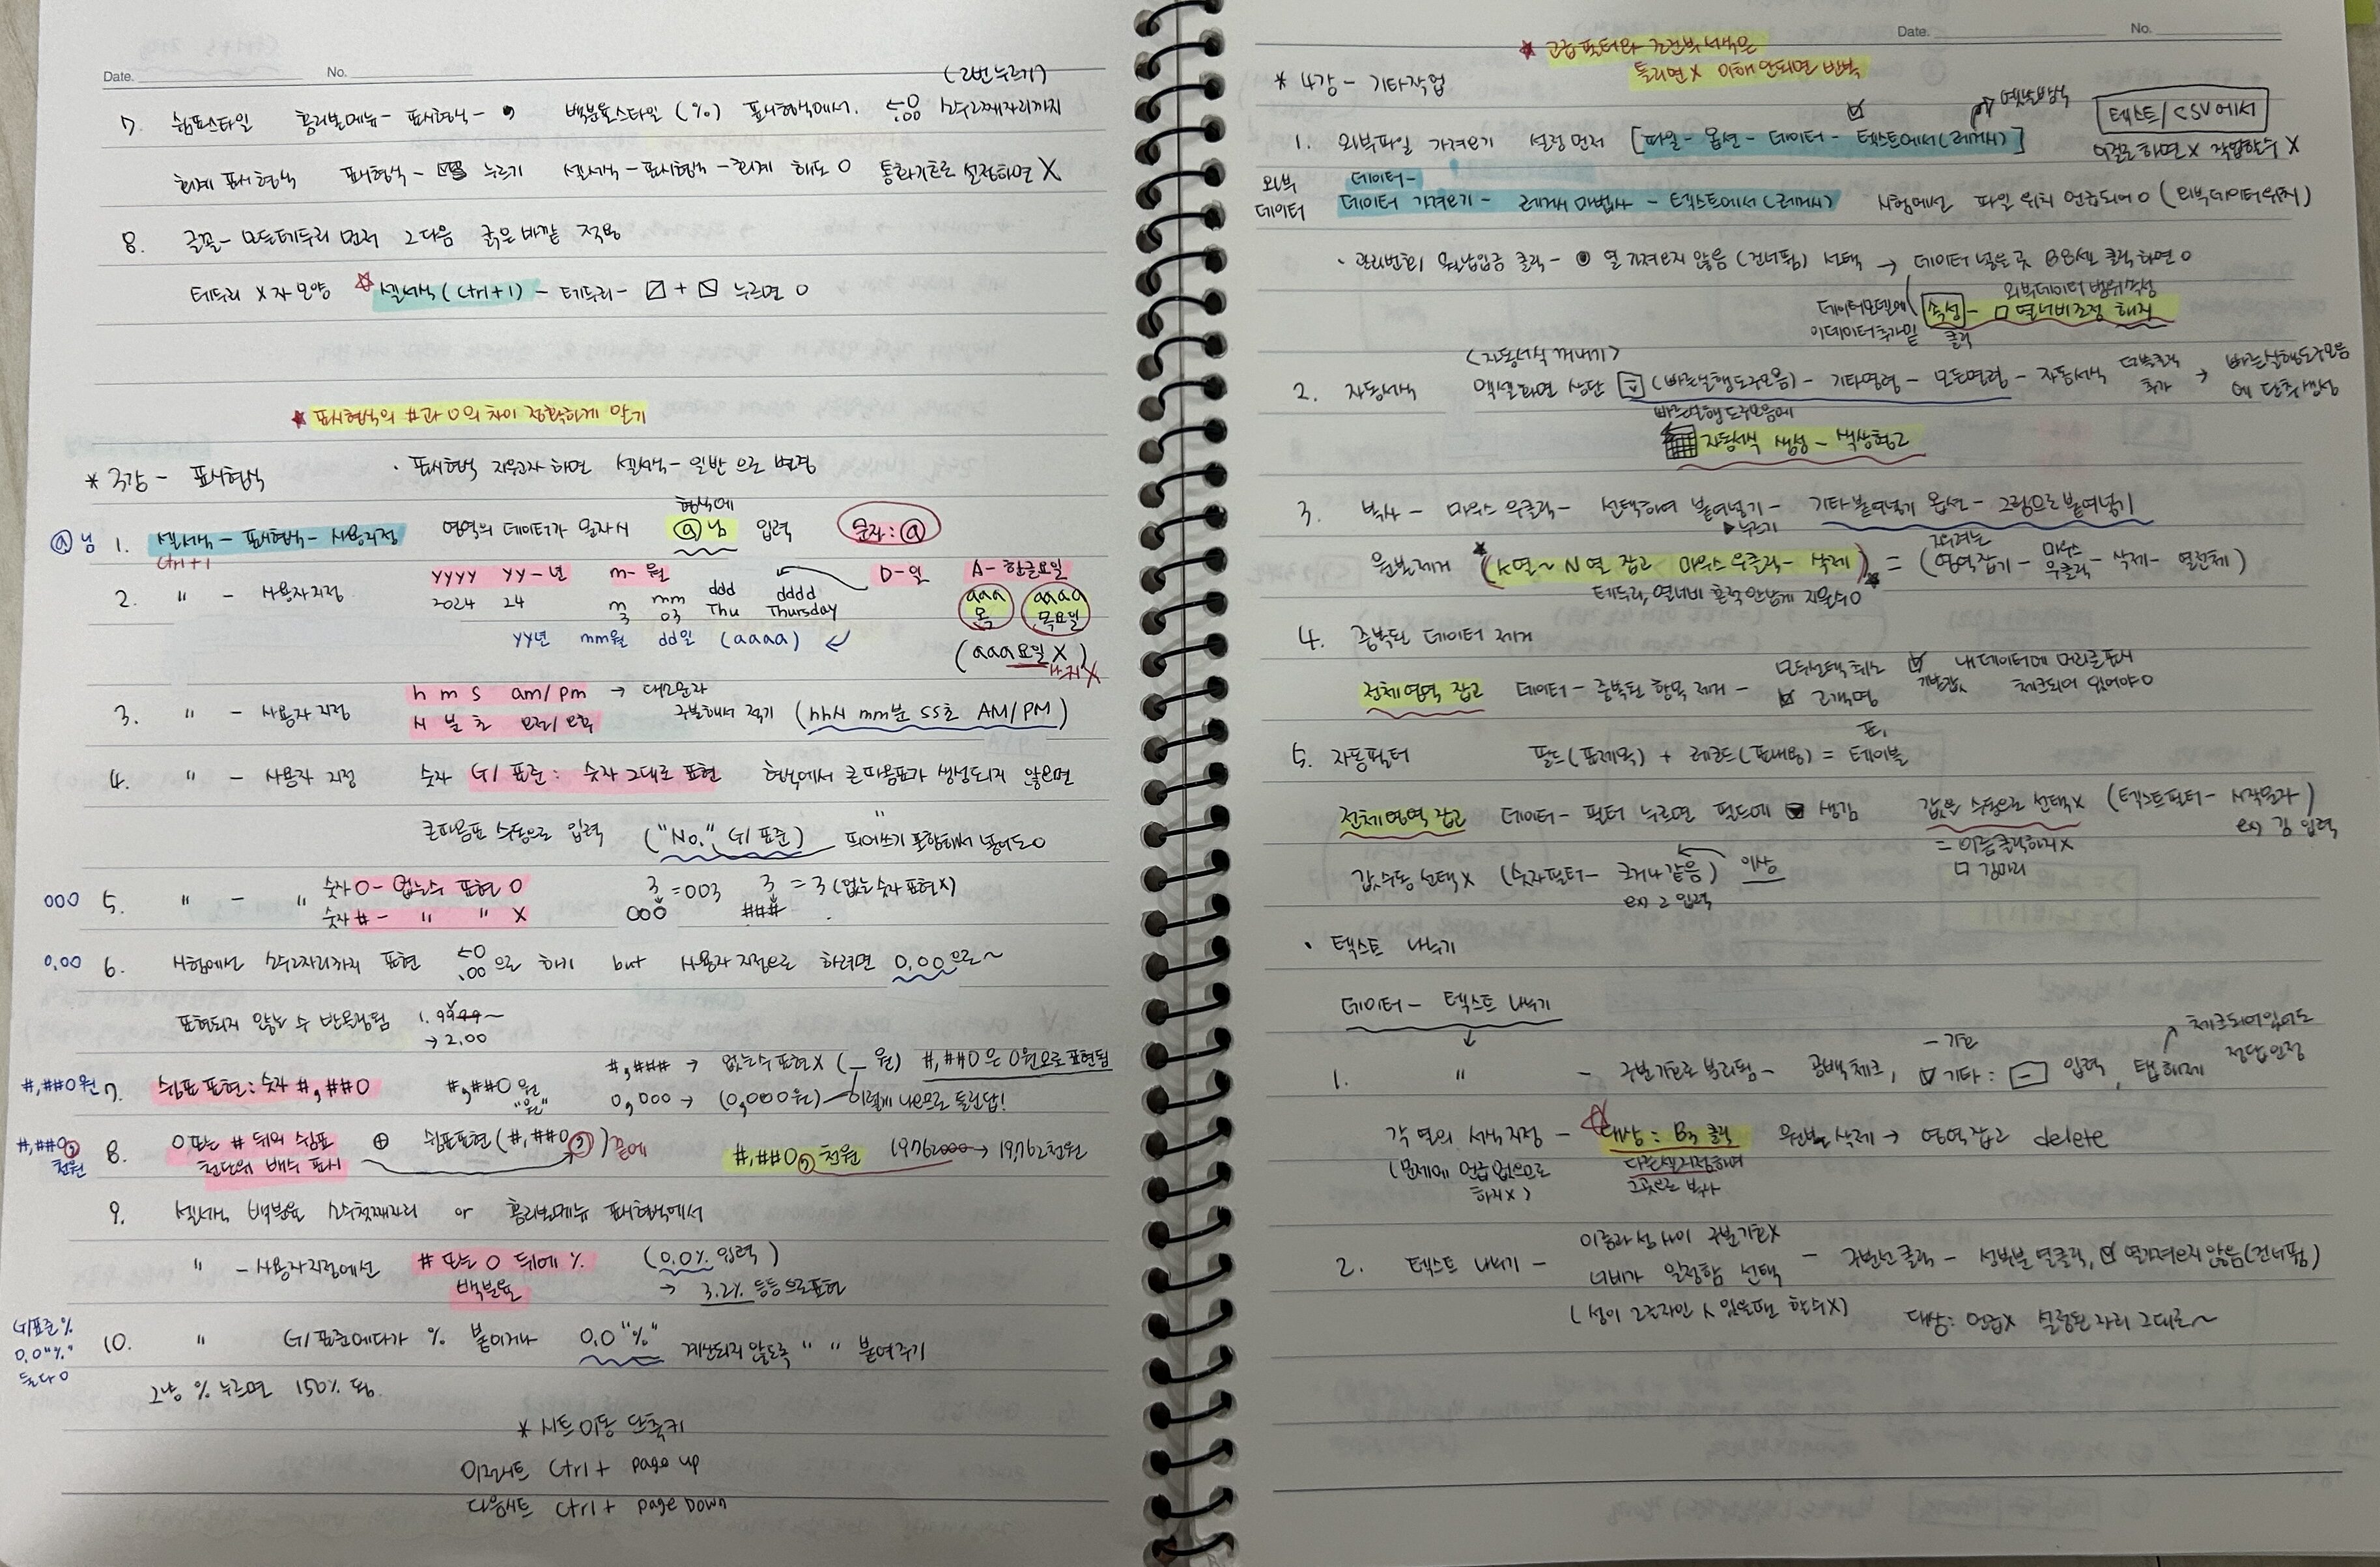 Date. No.
(2번 누르기)
7. 쉼표스타일 홈리본메뉴- 표시형식- , 백분율스타일 (%) 표시형식에서. ←0 .00 소수2째자리까지
회계 표시형식 표시형식- 누르기 셀서식-표시형식-회계 해도 O 통화기호로 설정하면 X
8. 글꼴- 모든테두리 먼저 그다음 굵은 바깥 적용
테두리 X자 모양 ☆ 셀서식(ctrl+1) - 테두리- ⍁ + ⍂ 누르면 O
★ 표시형식의 #과 0의 차이 정확하게 알기
* 3강 - 표시형식 · 표시형식 지우고자 하면 셀서식-일반 으로 변경
@ 님 1. 셀서식 - 표시형식 - 사용자지정 영역의 데이터가 문자시 형식에 @님 입력 문자:@
Ctrl+1
2. " - 사용자지정 yyyy yy-년 m-월 D-일 A-한글요일
2024 24 m mm ddd dddd aaa aaaa
3 03 Thu Thursday 목 목요일
yy년 mm월 dd일 (aaaa)
(aaa요일 X)
하지X
3. " - 사용자지정 h m s am/pm → 대소문자
시 분 초 오전/오후 구분해서 적기 (hh시 mm분 ss초 AM/PM)
4. " - 사용자 지정 숫자 G/표준: 숫자 그대로 표현 형식에서 큰따옴표가 생성되지 않으면
큰따옴표 수동으로 입력 ("No." G/표준) 띄어쓰기 포함해서 넣어도 O
000 5. " - " 숫자 0- 없는수 표현 O 3 =003 3 =3 (없는숫자 표현X)
숫자 # - " " X 000 ###
0.00 6. 시험에선 소수2자리까지 표현 ←0 .00 으로 하기 but 사용자 지정으로 하려면 0.00으로~
표현되지 않는 수 반올림됨 1.9999~
→ 2.00
#,### → 없는수표현X ( _ 원) #,##0은 0원으로표현됨
#,##0원 7. 쉼표 표현: 숫자 #,##0 #,##0 원 "원" 0,000 → (0,000원) 이렇게 나오므로 틀린답!
#,##0, 천원 8. 0또는 # 뒤의 쉼표 ⊕ 쉼표표현(#,##0,)끝에 #,##0,천원 19762000→19,762천원
천단위 배수 표시
9. 셀서식 백분율 소수첫째자리 or 홈리본메뉴 표시형식에서
" - 사용자지정에선 # 또는 0 뒤에 % (0.0% 입력)
백분율 → 3.2% 등등으로표현
G/표준% 0.0"%" 둘다 O
10. " G/표준에다가 % 붙이거나 0.0"%" 계산되지 않도록 " " 붙여주기
그냥 % 누르면 150% 됨.
* 시트 이동 단축키
이전시트 Ctrl + page up
다음시트 Ctrl + page Down
Date. No.
★ 고급 필터와 조건부서식은
틀리면X 이해 안되면 반복
* 4강 - 기타작업
옛날방식
텍스트/CSV에서
1. 외부파일 가져오기 설정 먼저 [파일 - 옵션 - 데이터 - 텍스트에서(레거시)]
이걸로 하면X 작업할수X
외부 데이터 데이터-
데이터 가져오기 - 레거시 마법사 - 텍스트에서(레거시) 시험에선 파일 위치 언급되어O (외부데이터위치)
· 관리번호, 월납입금 클릭- ⊙ 열 가져오지 않음 (건너뜀) 선택 → 데이터 넣은곳 B8셀 클릭하면O
외부데이터 범위속성
데이터모델에 이데이터추가밑 속성 클릭 - □ 열너비조정 해지
(자동서식 꺼내기)
2. 자동서식 엑셀화면 상단 (빠른실행도구모음) - 기타명령 - 모든명령 - 자동서식 더블클릭 추가 → 빠른실행도구모음에 단추생성
빠른실행 도구모음에
자동서식 생성 - 색상형2
3. 복사 - 마우스 우클릭 - 선택하여 붙여넣기 - 기타붙여넣기 옵션 - 그림으로 붙여넣기
▶누르기
원본제거 (K열~N열 잡고 마우스우클릭 - 삭제) = (지우려는 영역잡기 - 마우스 우클릭 - 삭제 - 열전체)
테두리, 열너비 흔적 안남게 지울수O
4. 중복된 데이터 제거
전체영역 잡고 데이터 - 중복된 항목 제거 - 모두선택 취소 ☑ 내 데이터에 머리글표시
☑ 고객명 기본값 체크되어 있어야O
5. 자동필터 필드(표제목) + 레코드(표내용) = 표, 테이블
전체영역 잡고 데이터 - 필터 누르면 필드에 ▼ 생김 값은 수동으로 선택X (텍스트필터 - 시작문자)
ex) 김 입력
= 이름클릭하지X
□ 김미리
값 수동 선택X (숫자필터 - 크거나 같음) 이상
ex) 2 입력
· 텍스트 나누기
데이터 - 텍스트 나누기
↓
1. " - 구분기호로 분리됨 - 공백체크, ☑기타: [-] 입력, 탭 해제
-기호
체크되어있어도 정답인정
각 열의 서식지정 - ☆대상: B3 클릭 원본 삭제 → 영역잡고 delete
(문제에 언급 없으므로 하지X) 다른셀지정하여 그곳으로 복사
2. 텍스트 나누기 - 이름과 성 사이 구분기호X
너비가 일정함 선택 - 구분선 클릭 - 성부분 열클릭, ☑ 열가져오지 않음(건너뜀)
(성이 2글자인 사람있을땐 할수X) 대상: 언급X 설정된 자리 그대로~